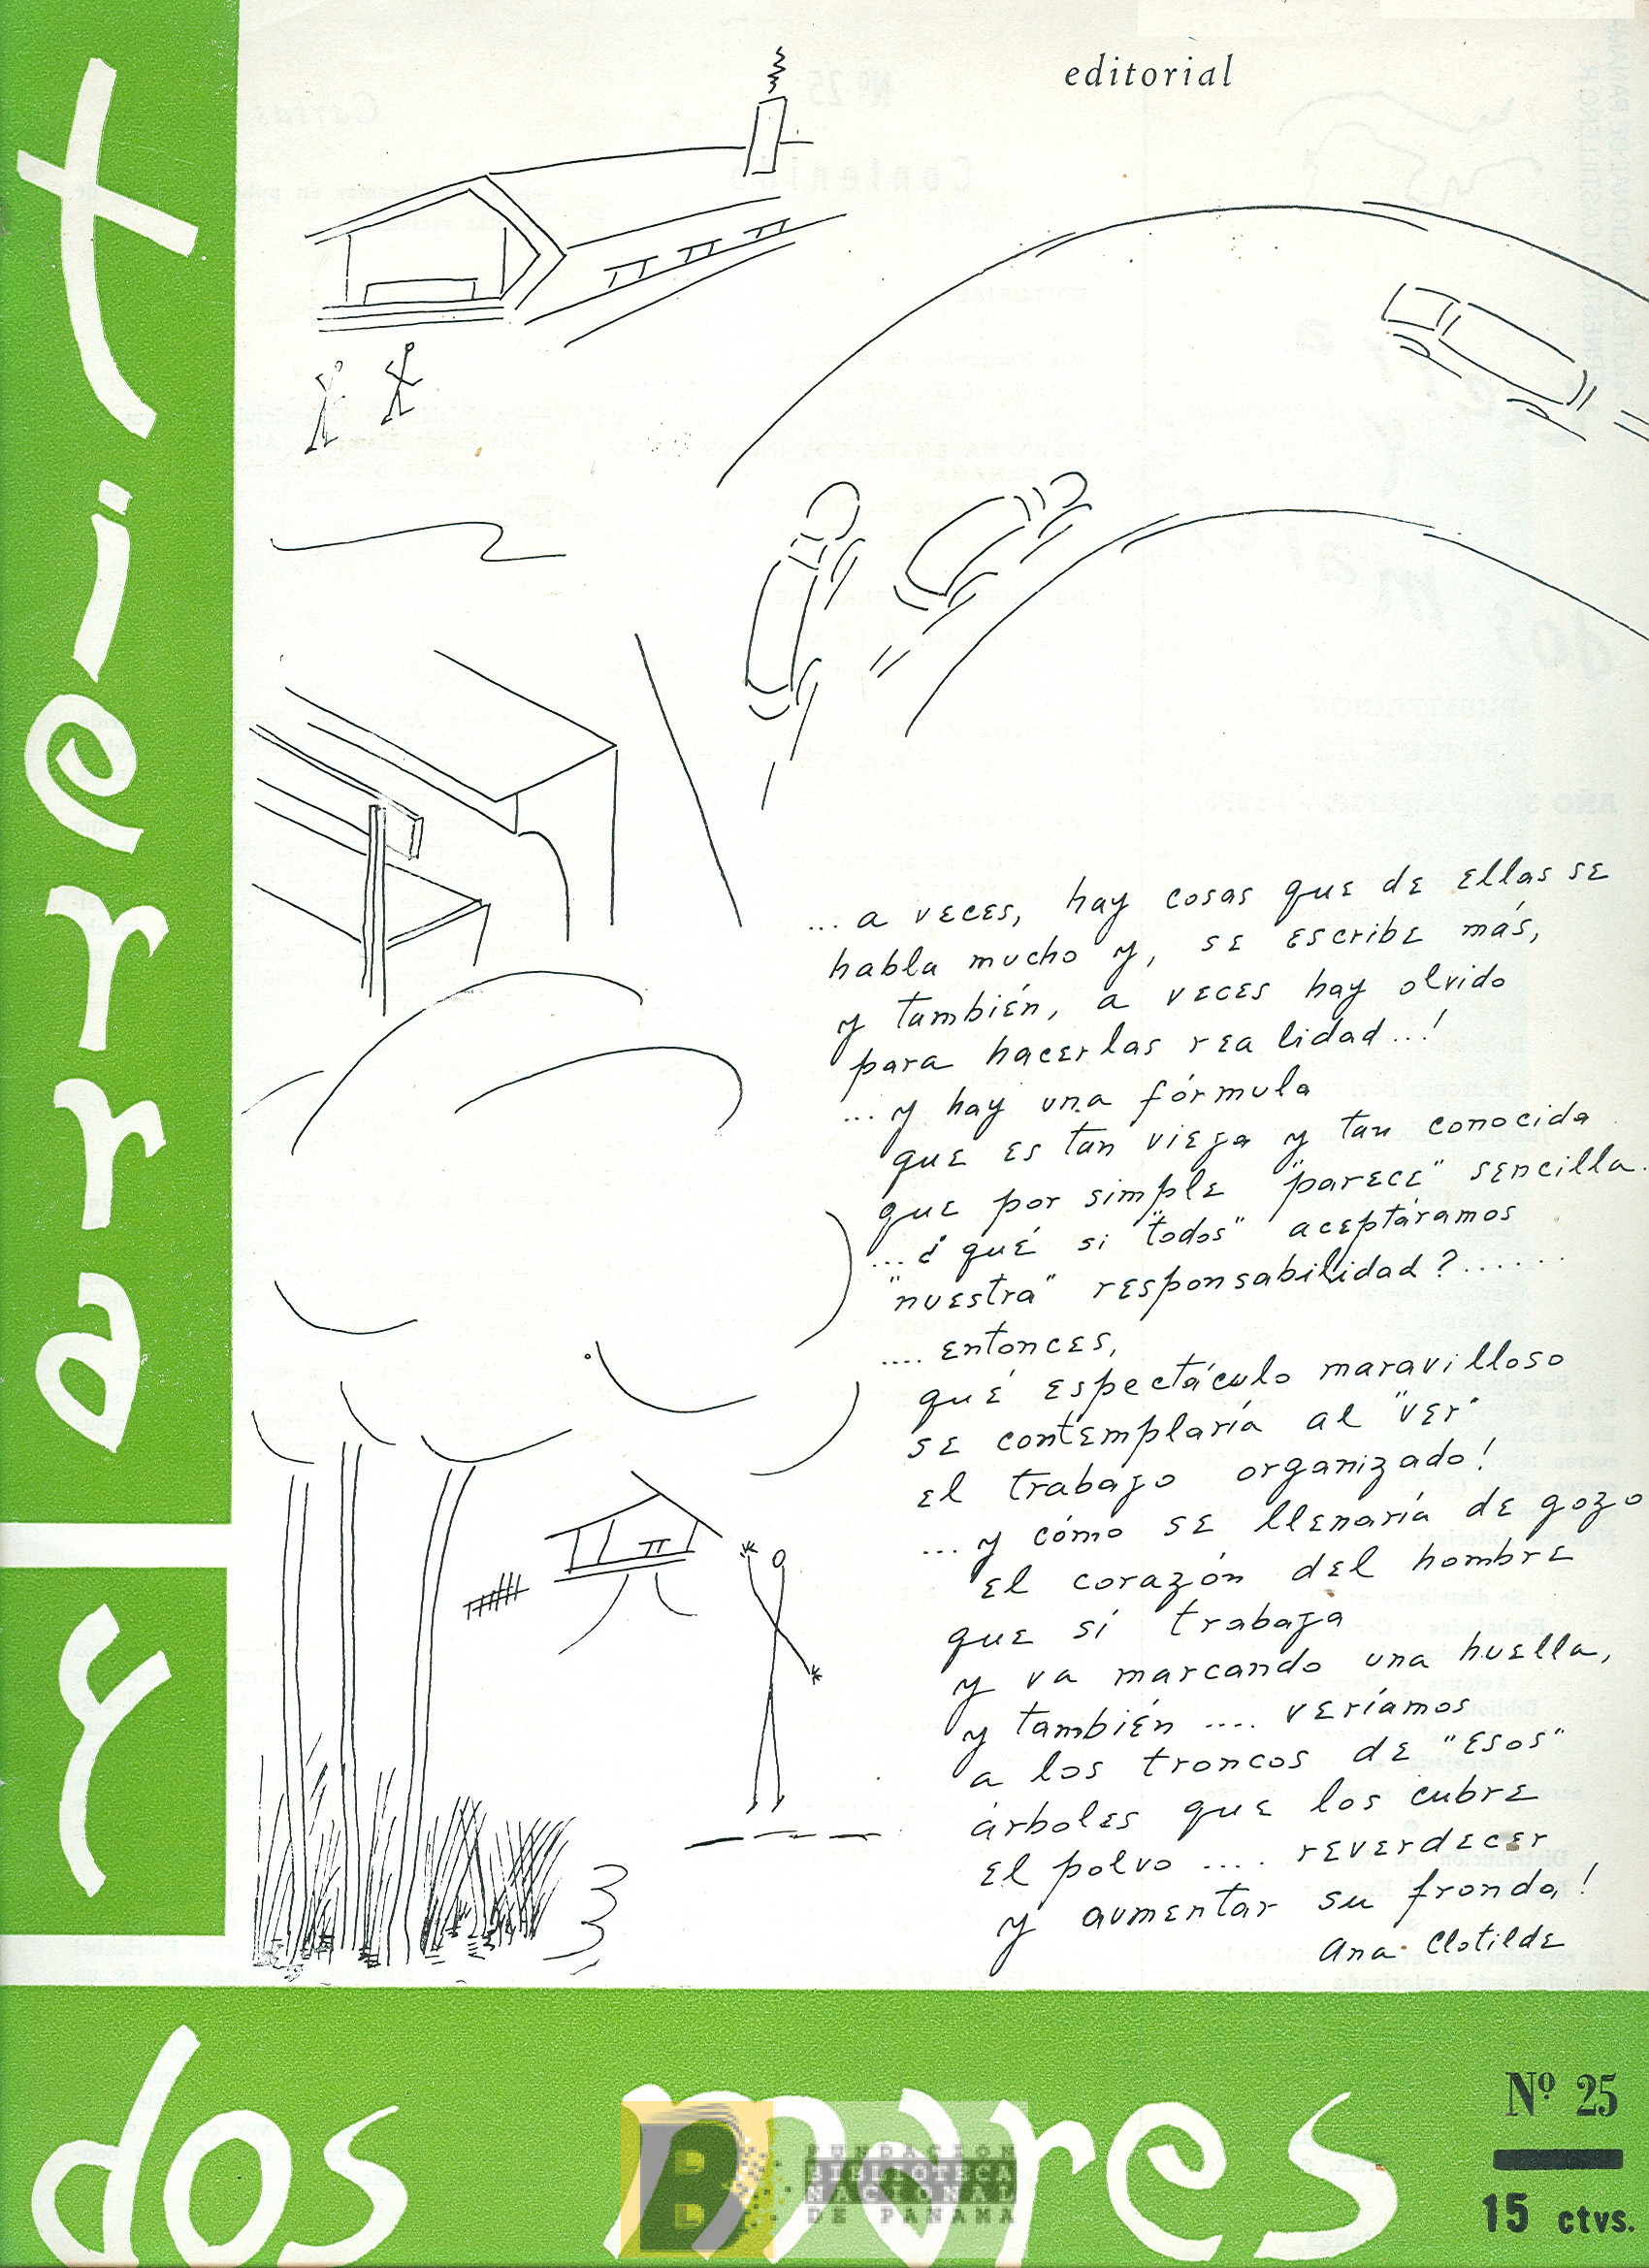 editorial
tierra
y
dos mares
...a veces, hay cosas que de ellas se
habla mucho y, se escribe más,
y también, a veces hay olvido
para hacerlas realidad...!
...y hay una fórmula
que es tan vieja y tan conocida
que por simple "parece" sencilla.
...¿qué si "todos" aceptáramos
"nuestra" responsabilidad?......
.... entonces,
qué espectáculo maravilloso
se contemplaría al "ver"
el trabajo organizado!
...y cómo se llenaría de gozo
el corazón del hombre
que sí trabaja
y va marcando una huella,
y también .... veríamos
a los troncos de "esos"
árboles que los cubre
el polvo .... reverdecer
y aumentar su fronda!
Ana Clotilde
Nº 25
15 ctvs.
B
FUNDACION
BIBLIOTECA
NACIONAL
DE PANAMA